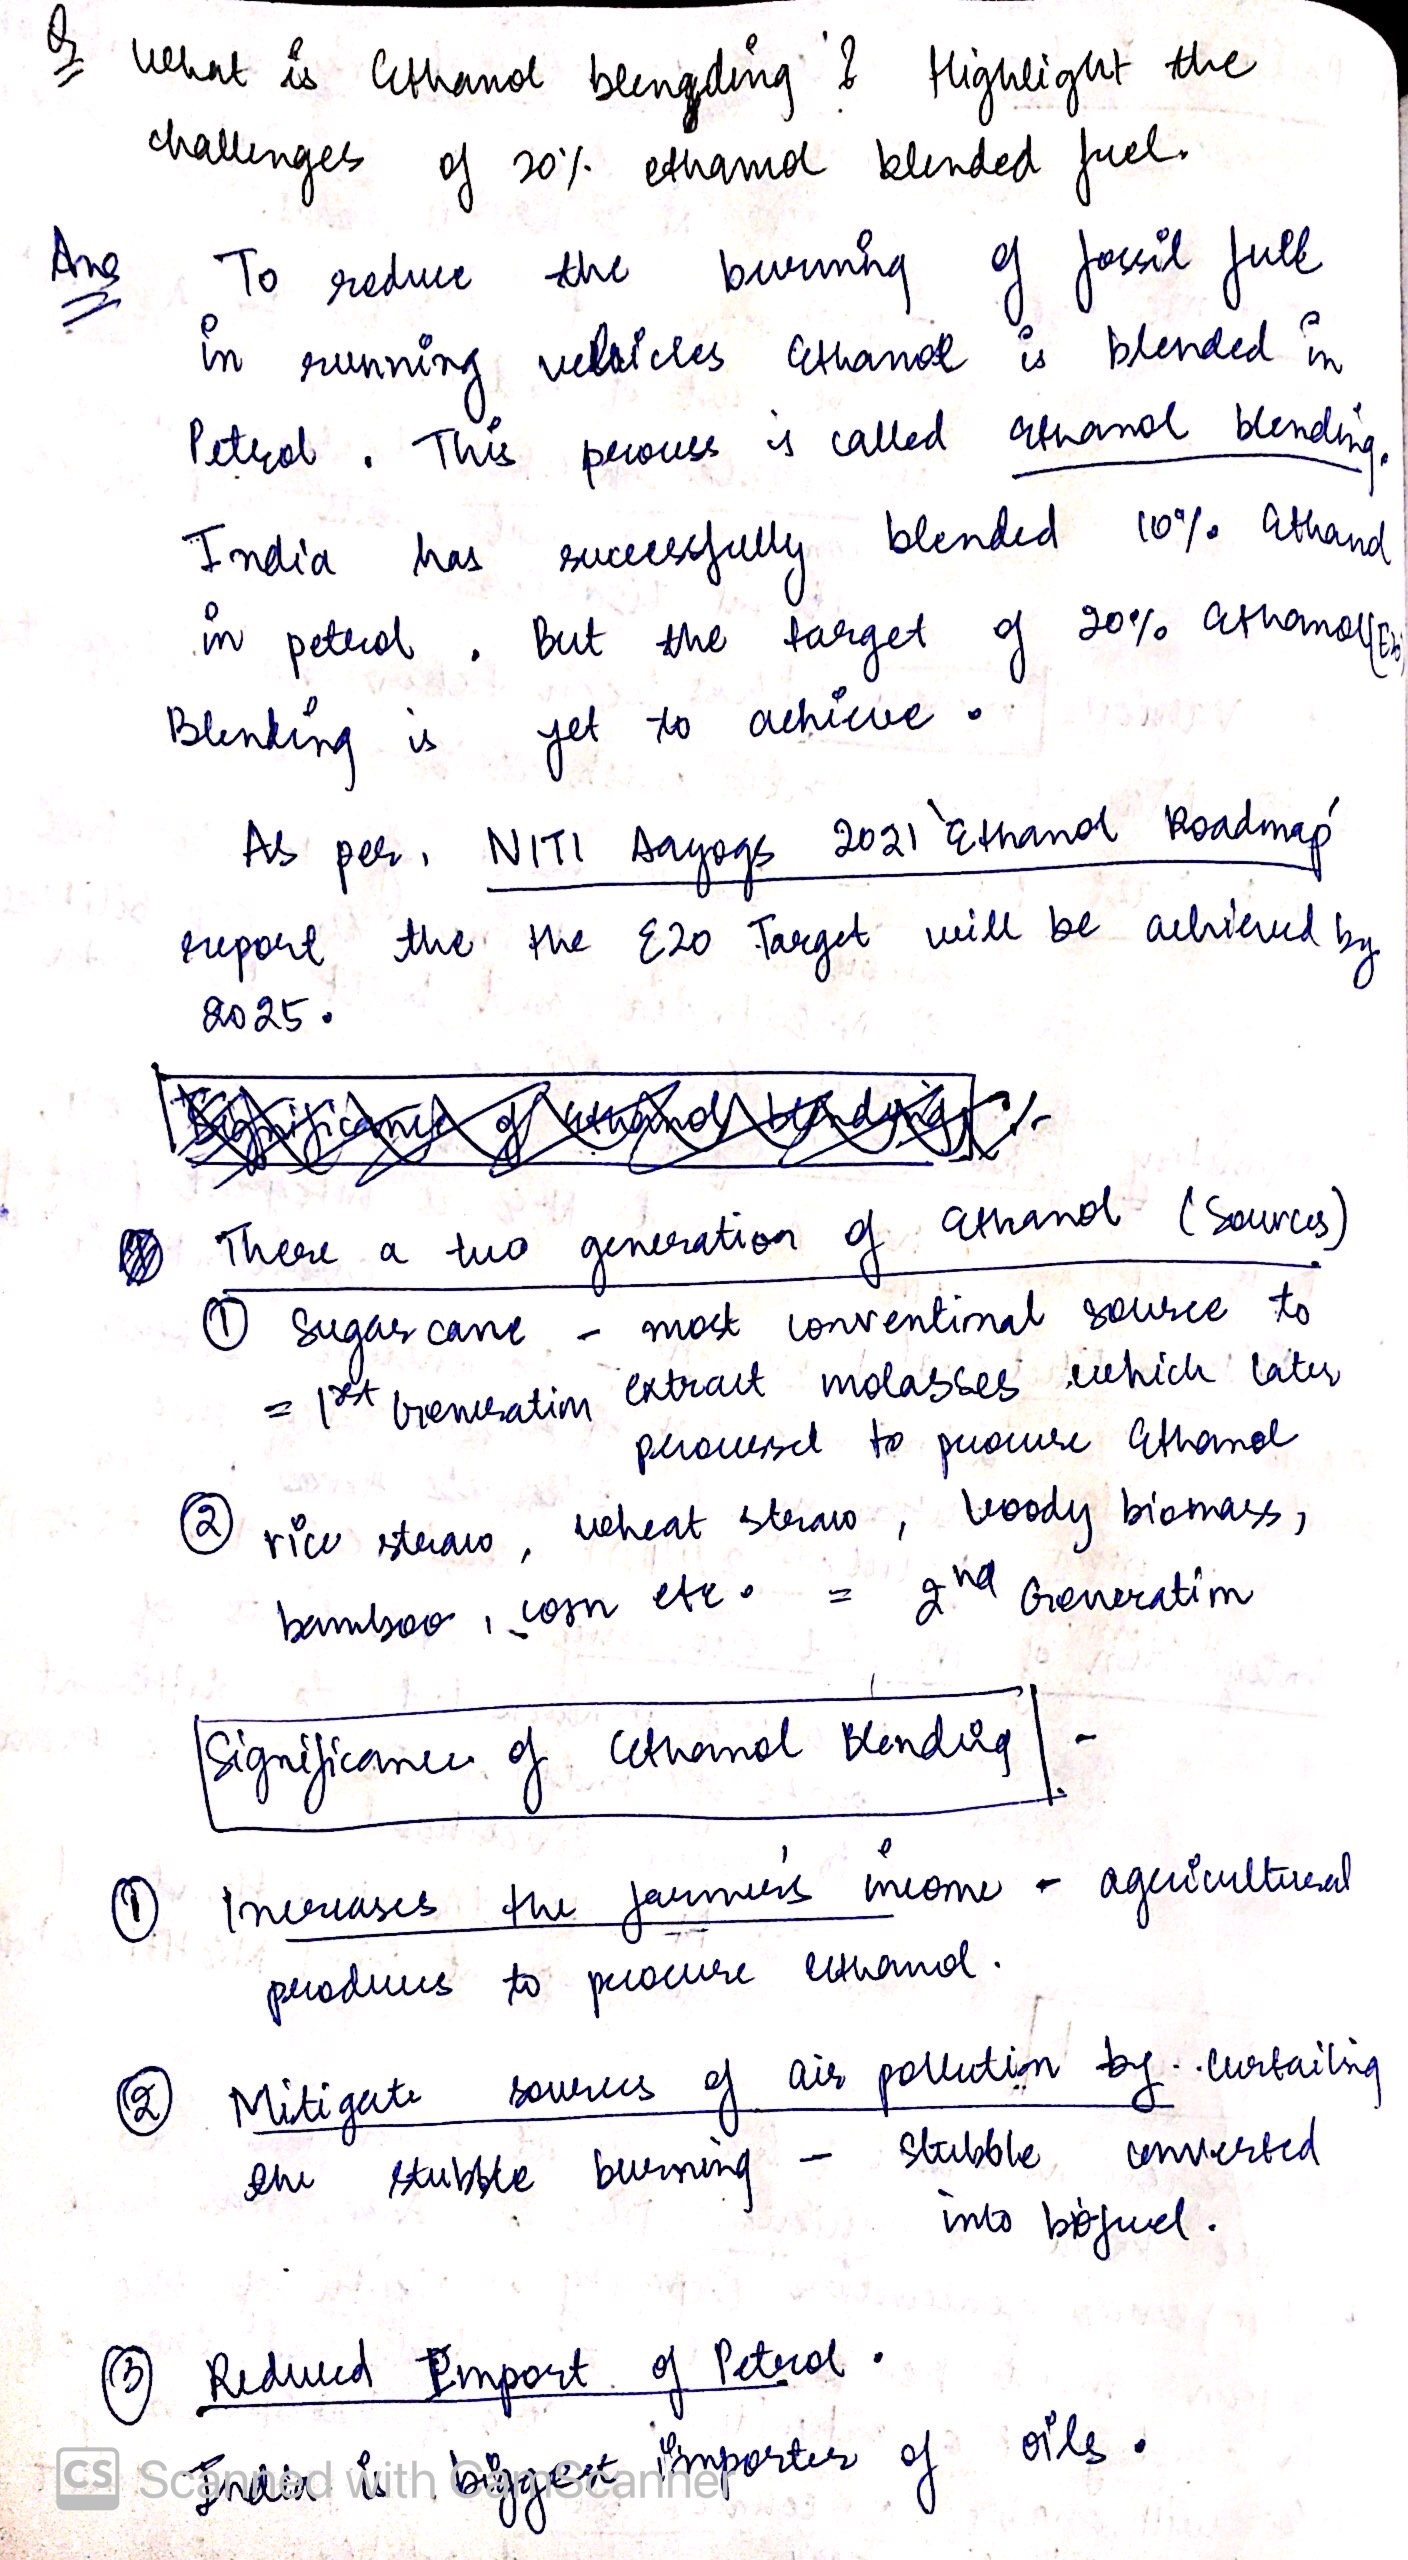 Q What is Ethanol blengding ? Highlight the
challenges of 20% ethanol blended fuel.
Ans To reduce the burning of fossil
in running vehicles Ethanol is blended in
Petrol . This process is called Ethanol blending.
India has successfully blended 10% Ethanol
in petrol . But the target of 20% Ethanol (E20)
Blending is yet to achieve .
As per, NITI Aayogs 2021 'Ethanol Roadmap'
report the the E20 Target will be achieved by
2025.
Significance of Ethanol blending :-
There a two generation of Ethanol (Sources)
① Sugarcane - most conventional source to
= 1st Generation extract molasses which later
processed to procure Ethanol
② rice straw, wheat straw, Woody biomass,
bamboo, corn etc. = 2nd Generation
Significance of Ethanol Blending -
① Increases the farmer's income - agricultural
produces to procure ethanol.
② Mitigate sources of air pollution by curtailing
the stubble burning - Stubble converted
into biofuel.
③ Reduced Import of Petrol.
India is biggest importer of oils.
CS Scanned with CamScanner